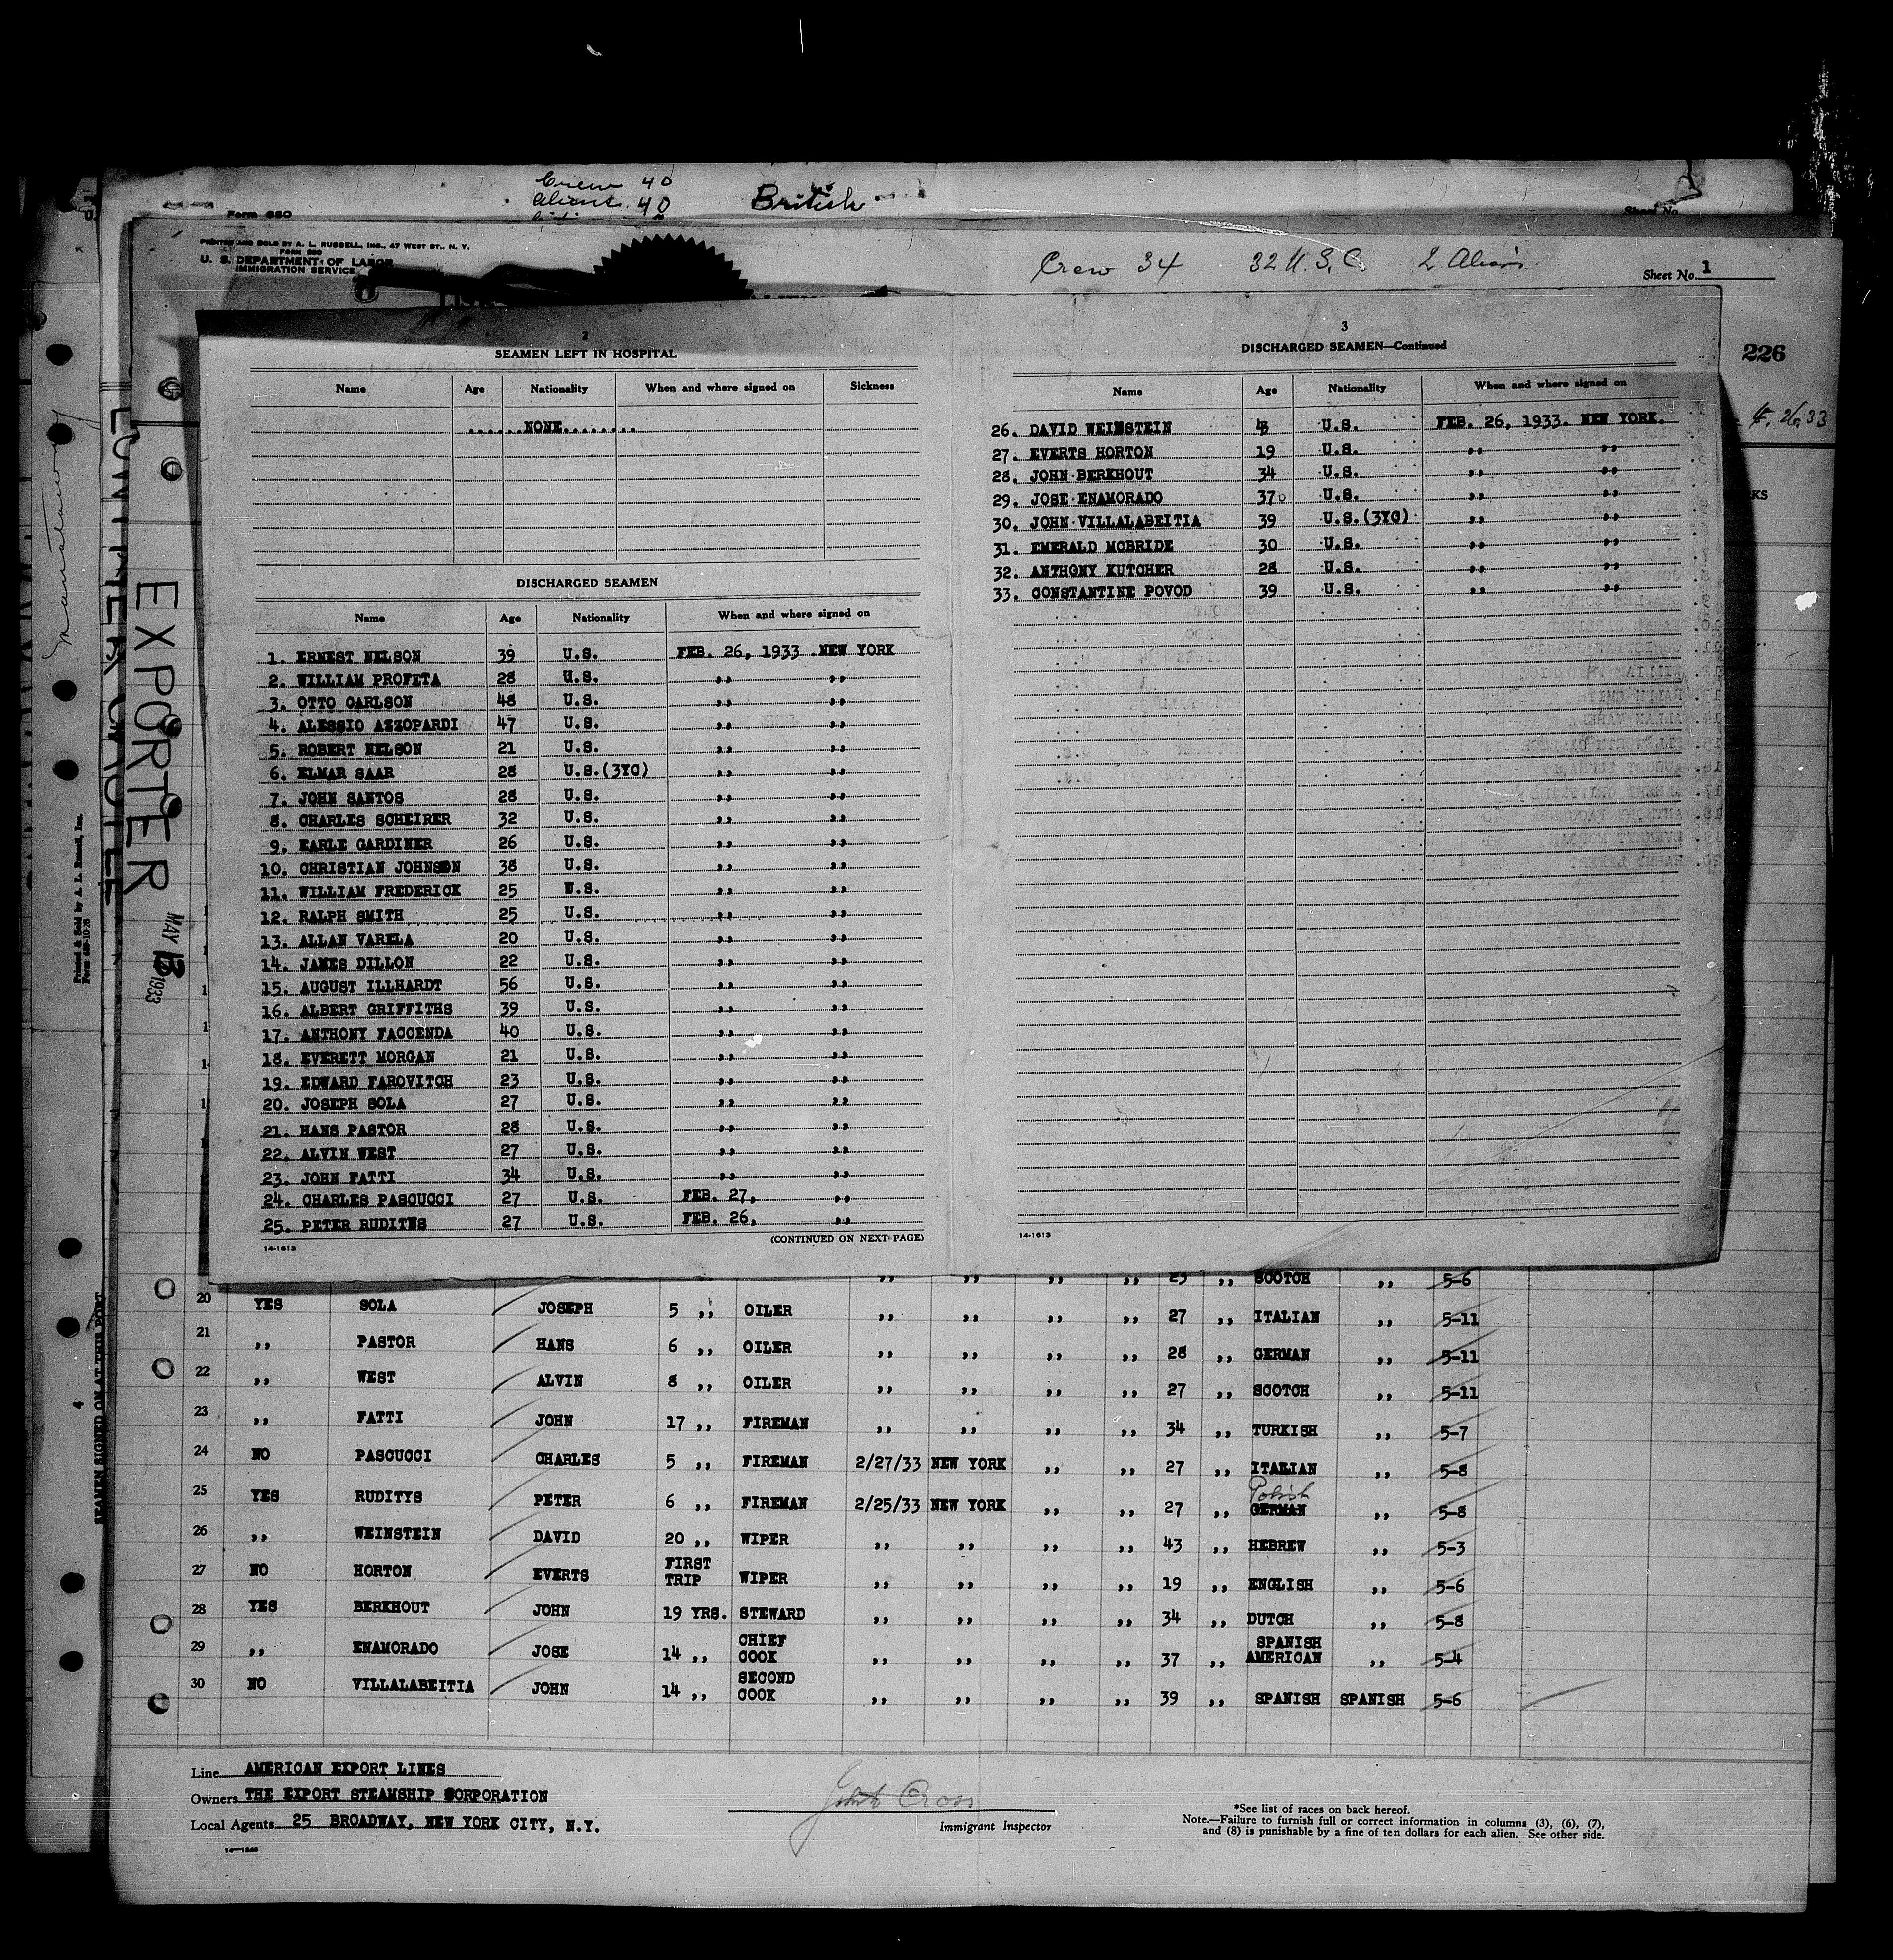 Crew 40
Aliens 40
British
Form 680
Sheet No.
PRINTED AND SOLD BY A. L. RUSSELL, INC., 47 WEST ST., N. Y.
Form 680
U. S. DEPARTMENT OF LABOR
IMMIGRATION SERVICE
Crew 34 32 U.S.C. 2 Aliens
Sheet No. 1
226
EXPORTER
MAY 1933
Printed & Sold by A. L. Russell, Inc.
SEAMEN SIGNED ON AT THIS PORT
4
2
SEAMEN LEFT IN HOSPITAL
Name Age Nationality When and where signed on Sickness
......NONE........
DISCHARGED SEAMEN
Name Age Nationality When and where signed on
1. ERNEST NELSON 39 U.S. FEB. 26, 1933 .NEW YORK
2. WILLIAM PROFETA 28 U.S. ,, ,,
3. OTTO CARLSON 48 U.S. ,, ,,
4. ALESSIO AZZOPARDI 47 U.S. ,, ,,
5. ROBERT NELSON 21 U.S. ,, ,,
6. ELMAR SAAR 28 U.S.(3YC) ,, ,,
7. JOHN SANTOS 28 U.S. ,, ,,
8. CHARLES SCHEIRER 32 U.S. ,, ,,
9. EARLE GARDINER 26 U.S. ,, ,,
10. CHRISTIAN JOHNSON 38 U.S. ,, ,,
11. WILLIAM FREDERICK 25 U.S. ,, ,,
12. RALPH SMITH 25 U.S. ,, ,,
13. ALLAN VARELA 20 U.S. ,, ,,
14. JAMES DILLON 22 U.S. ,, ,,
15. AUGUST ILLHARDT 56 U.S. ,, ,,
16. ALBERT GRIFFITHS 39 U.S. ,, ,,
17. ANTHONY FACCENDA 40 U.S. ,, ,,
18. EVERETT MORGAN 21 U.S. ,, ,,
19. EDWARD FAROVITCH 23 U.S. ,, ,,
20. JOSEPH SOLA 27 U.S. ,, ,,
21. HANS PASTOR 28 U.S. ,, ,,
22. ALVIN WEST 27 U.S. ,, ,,
23. JOHN FATTI 34 U.S. ,, ,,
24. CHARLES PASCUCCI 27 U.S. FEB. 27, ,,
25. PETER RUDITYS 27 U.S. FEB. 26, ,,
14-1613
(CONTINUED ON NEXT PAGE)
3
DISCHARGED SEAMEN—Continued
Name Age Nationality When and where signed on
26. DAVID WEINSTEIN U.S. FEB. 26, 1933. NEW YORK.
27. EVERTS HORTON 19 U.S. ,, ,,
28. JOHN BERKHOUT 34 U.S. ,, ,,
29. JOSE ENAMORADO 37 U.S. ,, ,,
30. JOHN VILLALABEITIA 39 U.S.(3YC) ,, ,,
31. EMERALD MCBRIDE 30 U.S. ,, ,,
32. ANTHONY KUTCHER 28 U.S. ,, ,,
33. CONSTANTINE POVOD 39 U.S. ,, ,,
14-1613
,, ,, ,, ,, 23 ,, SCOTCH ,, 5-6
20 YES SOLA JOSEPH 5 ,, OILER ,, ,, ,, ,, 27 ,, ITALIAN ,, 5-11
21 ,, PASTOR HANS 6 ,, OILER ,, ,, ,, ,, 28 ,, GERMAN ,, 5-11
22 ,, WEST ALVIN 8 ,, OILER ,, ,, ,, ,, 27 ,, SCOTCH ,, 5-11
23 ,, FATTI JOHN 17 ,, FIREMAN ,, ,, ,, ,, 34 ,, TURKISH ,, 5-7
24 NO PASCUCCI CHARLES 5 ,, FIREMAN 2/27/33 NEW YORK ,, ,, 27 ,, ITALIAN ,, 5-8
Polish
25 YES RUDITYS PETER 6 ,, FIREMAN 2/25/33 NEW YORK ,, ,, 27 ,, GERMAN ,, 5-8
26 ,, WEINSTEIN DAVID 20 ,, WIPER ,, ,, ,, ,, 43 ,, HEBREW ,, 5-3
27 NO HORTON EVERTS FIRST TRIP WIPER ,, ,, ,, ,, 19 ,, ENGLISH ,, 5-6
28 YES BERKHOUT JOHN 19 YRS. STEWARD ,, ,, ,, ,, 34 ,, DUTCH ,, 5-8
29 ,, ENAMORADO JOSE 14 ,, CHIEF COOK ,, ,, ,, ,, 37 ,, SPANISH AMERICAN ,, 5-4
30 NO VILLALABEITIA JOHN 14 ,, SECOND COOK ,, ,, ,, ,, 39 ,, SPANISH SPANISH 5-6
Line AMERICAN EXPORT LINES
Owners THE EXPORT STEAMSHIP CORPORATION
Local Agents 25 BROADWAY, NEW YORK CITY, N.Y.
Cross
Immigrant Inspector
*See list of races on back hereof.
Note.—Failure to furnish full or correct information in columns (3), (6), (7),
and (8) is punishable by a fine of ten dollars for each alien. See other side.